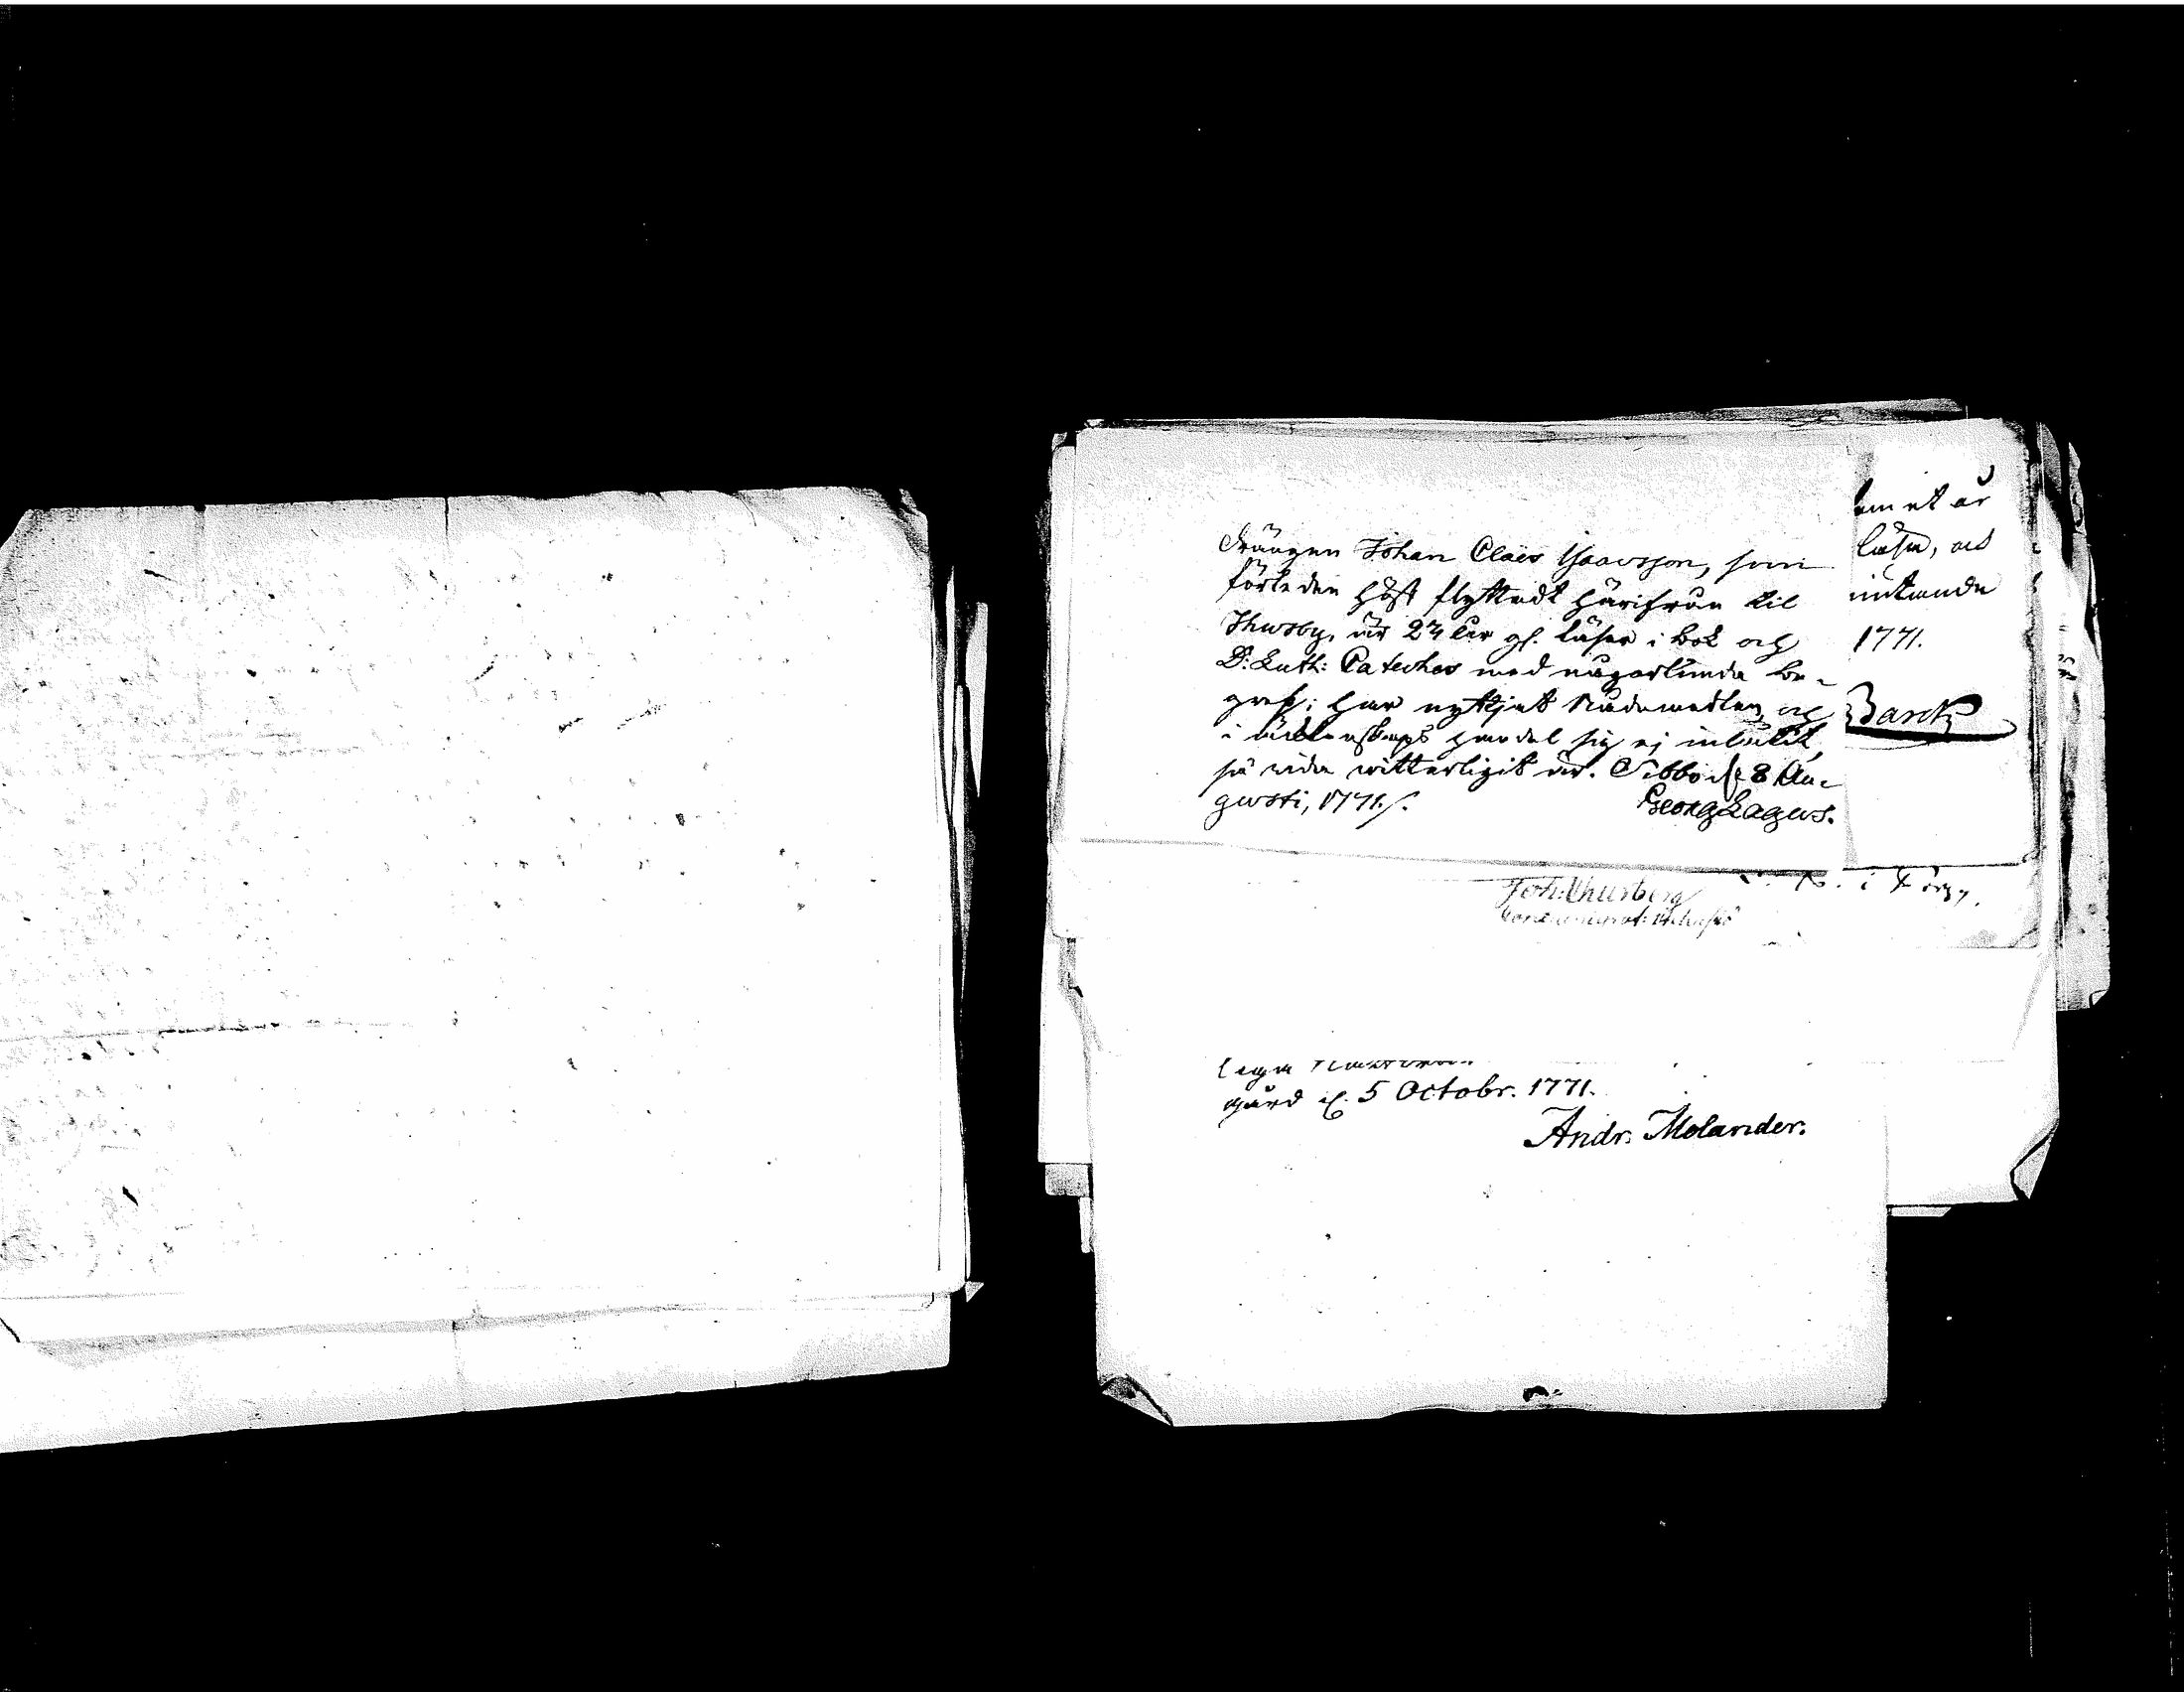 Drängen Johan Claës Isaacsson, som
förleden höst flyttadt härifrån til
Thusby, är 24 åhr gl. läser i bok och
D: Luth: Cateches med någorlunda be-
grep; har nyttjat Nådemedlen och
i äcktenskaps handel sig ej inlåtit,
så vida witterligit är. Sibbo d. 8 Au-
gusti, 1771.
Georg Lagus.
läsa, och
1771.
Barck
Joh: Thurberg
gård d. 5 Octobr. 1771.
Andr. Molander.